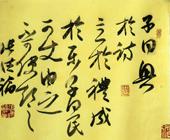 子曰興
於詩
立於禮成
於樂子曰民
可使由之
不可使知之